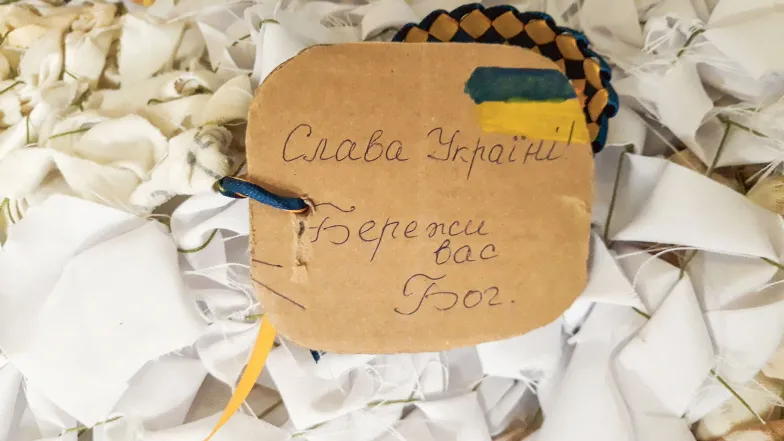 Слава Україні!
Бережи
вас
Бог.